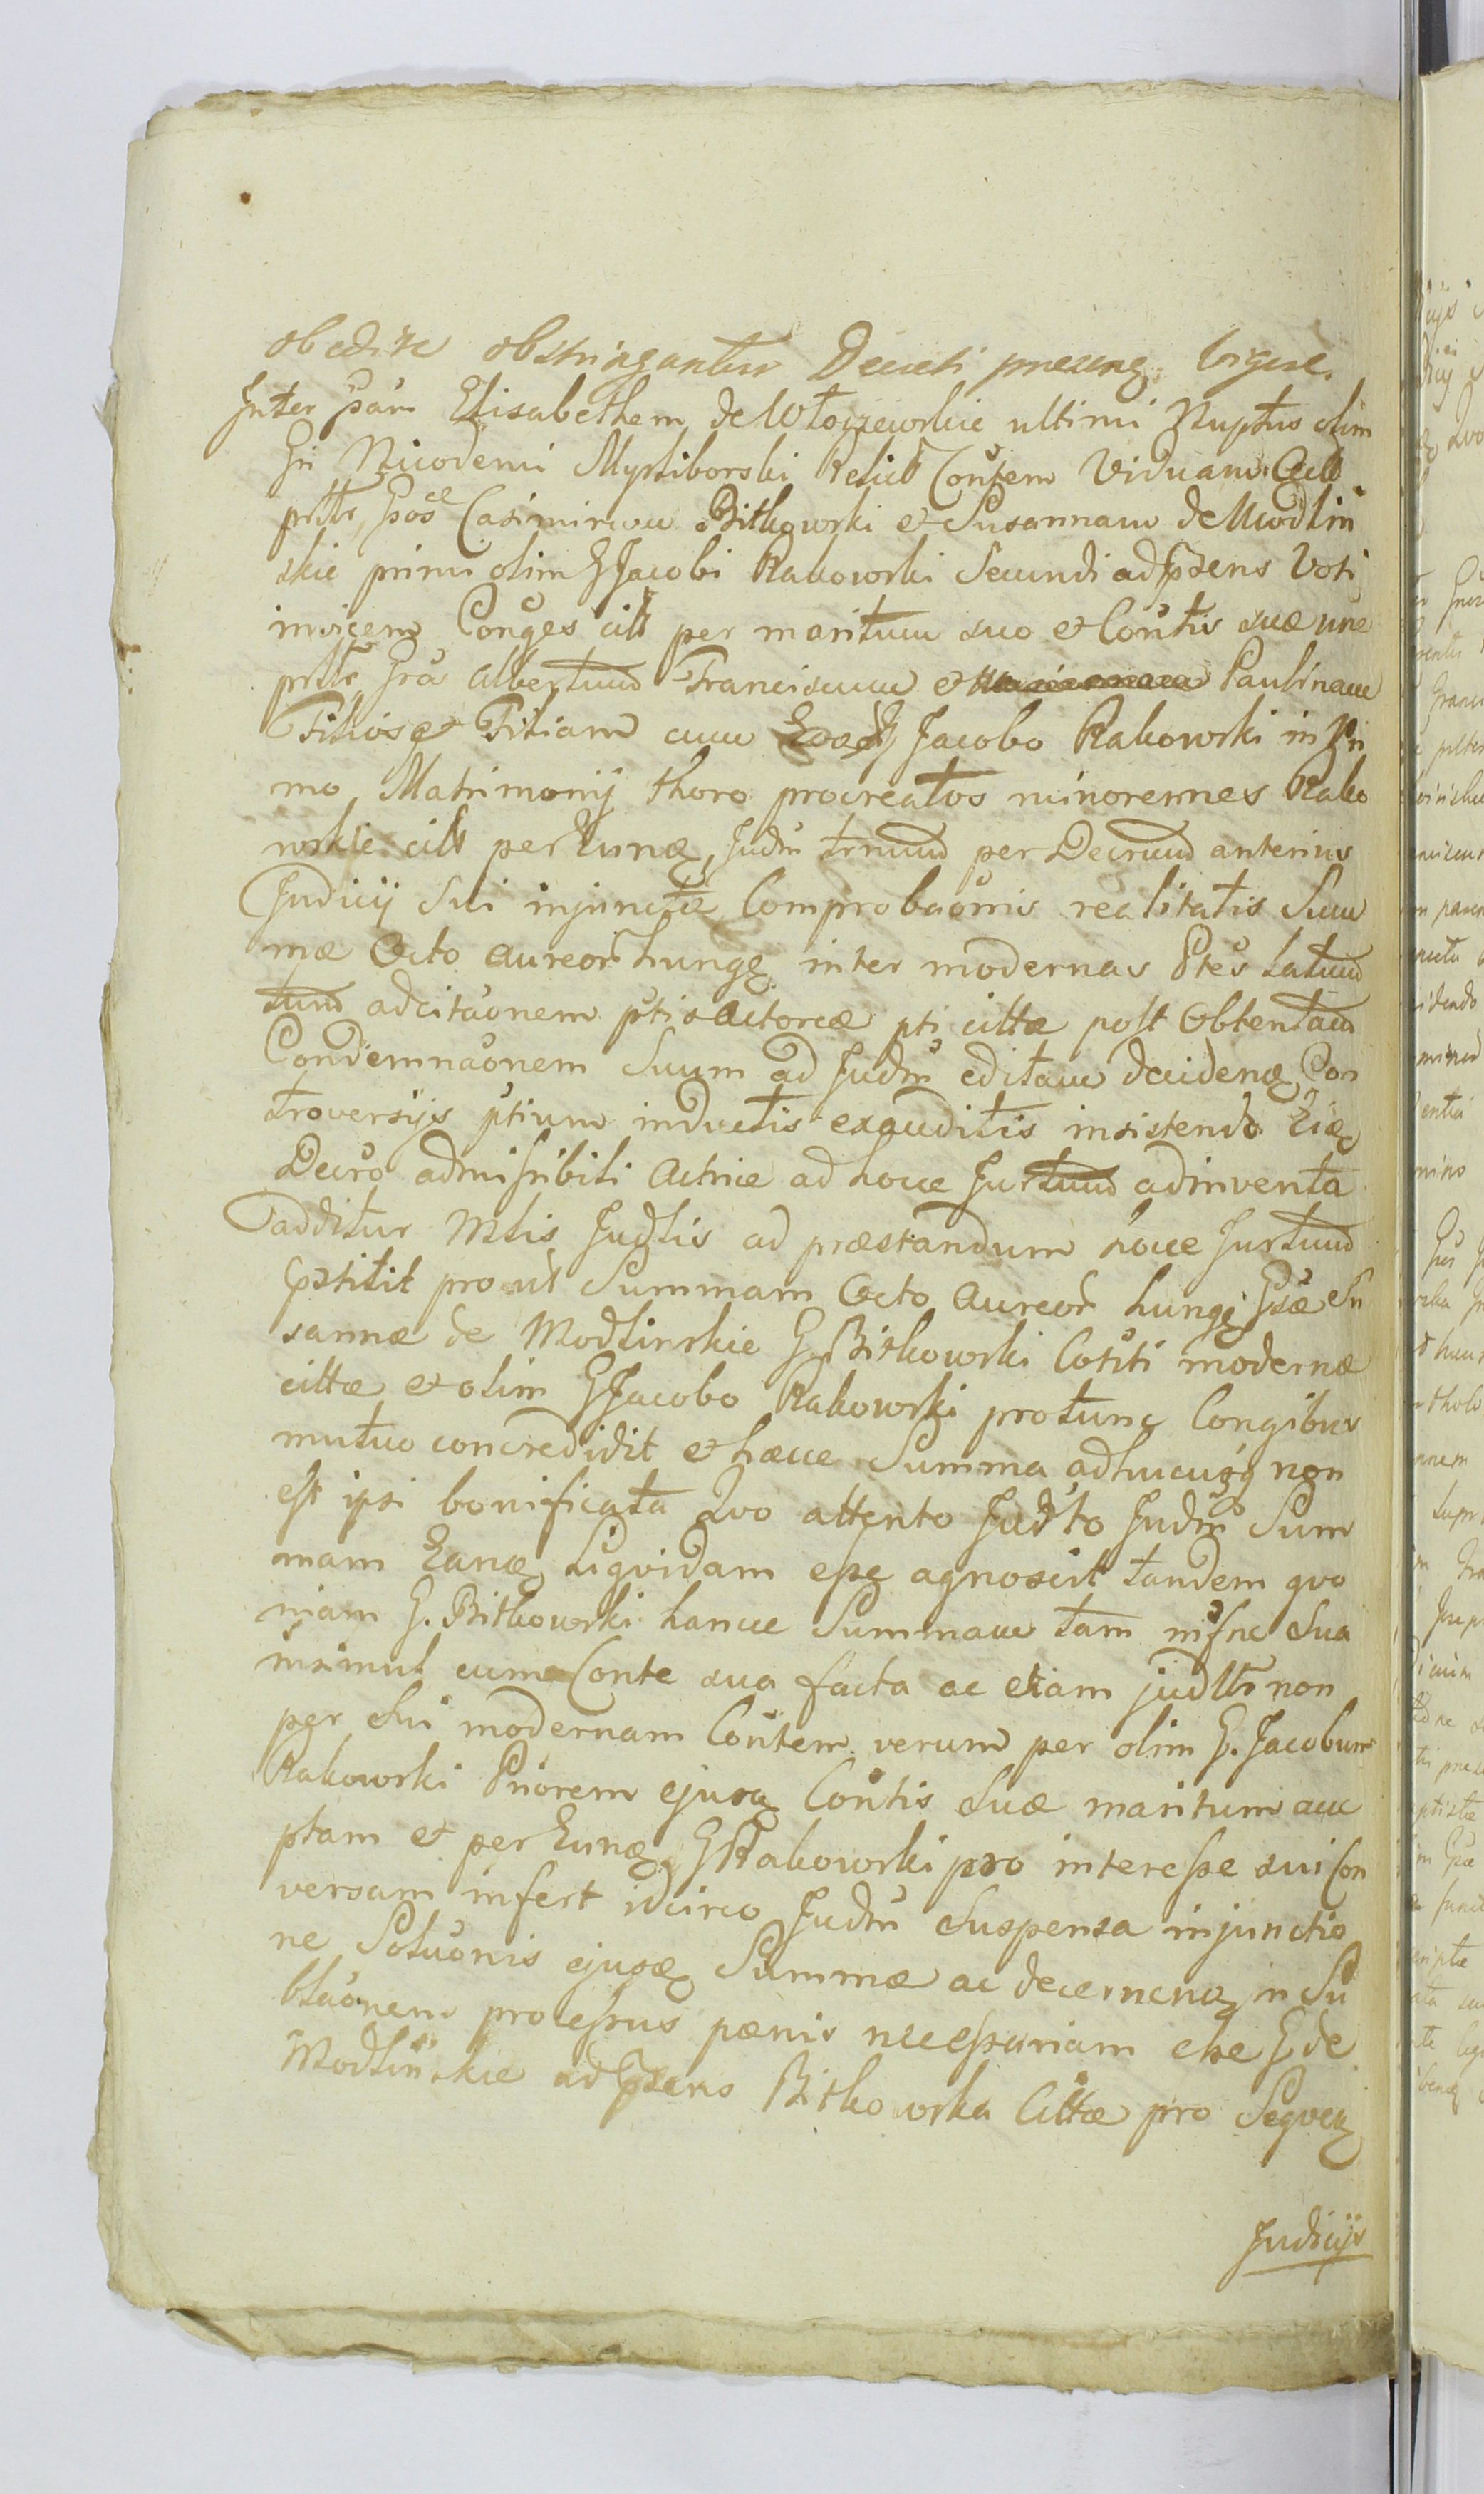 obedire obstringantur Decreti praesentis vigore.
Inter Gsam Elisabethem de Wloszewskie ultimi Nuptus olim
Gn Nicodemi Mysliborski Relict Contem Viduam Act
prtte, Gsos Casimirum Bitkowski et Susannam de Modlin
skie primi olim G Jacobi Rakowski Secundi ad psens Voti
invicem Conges citt per maritum suo et Contis suae nne
prtte Gra Albertum Franciscum et Paulinam
Filios et Filiam cum Jacobo Rakowski in Pri
mo Matrimonij thoro procreatos minorennes Rako
wskie citt per Eunq Judm trnmd per Decrum anterius
Judicij sui injunctae Comprobaonis realitatis Sum
mae Octo aureor hungq inter modernas Ptes latum
tum adcitaonem ptis Actoreae pti cittae post Obtentam
Condemnaonem Suum ad Judm editam decidenq Con
troversijs ptium inductis exauditis insistendo
Decro admissibili Actrice ad hocce Jurtum adinventa
additur Mtis Judtis ad praestandum hocce Jurtum
pstitit pro ut Summam Octo Aureor hungq Gsae Su
sannae de Modlinskie G Bitkowski Consti modernae
cittae et olim G Jacobo Rakowski protunc Congibus
mutuo concredidit et haecce Summa adhucusq non
est ipsi bonificata Quo attento Judto Judm Sum
mam Eanq Liqvidam esse agnoscit tandem qvo
niam G. Bitkowski hancce Summam tam insne Sua
insimul cum Conte sua facta ac etiam judtte non
per sui modernam Contem verum per olim G. Jacobum
Rakowski Priorem ejusq Contis Suae maritum acce
ptam et per Eunq G Rakowski pro interesse sui con
versam infert idcirco Judm Suspensa injunctio
ne Solutonis ejusq Summae ac decernenq in Su
btaonem processus paenis necessariam esse G de
Modlinskie ad psens Bitkowska Cittae pro Seqven
Judicijs